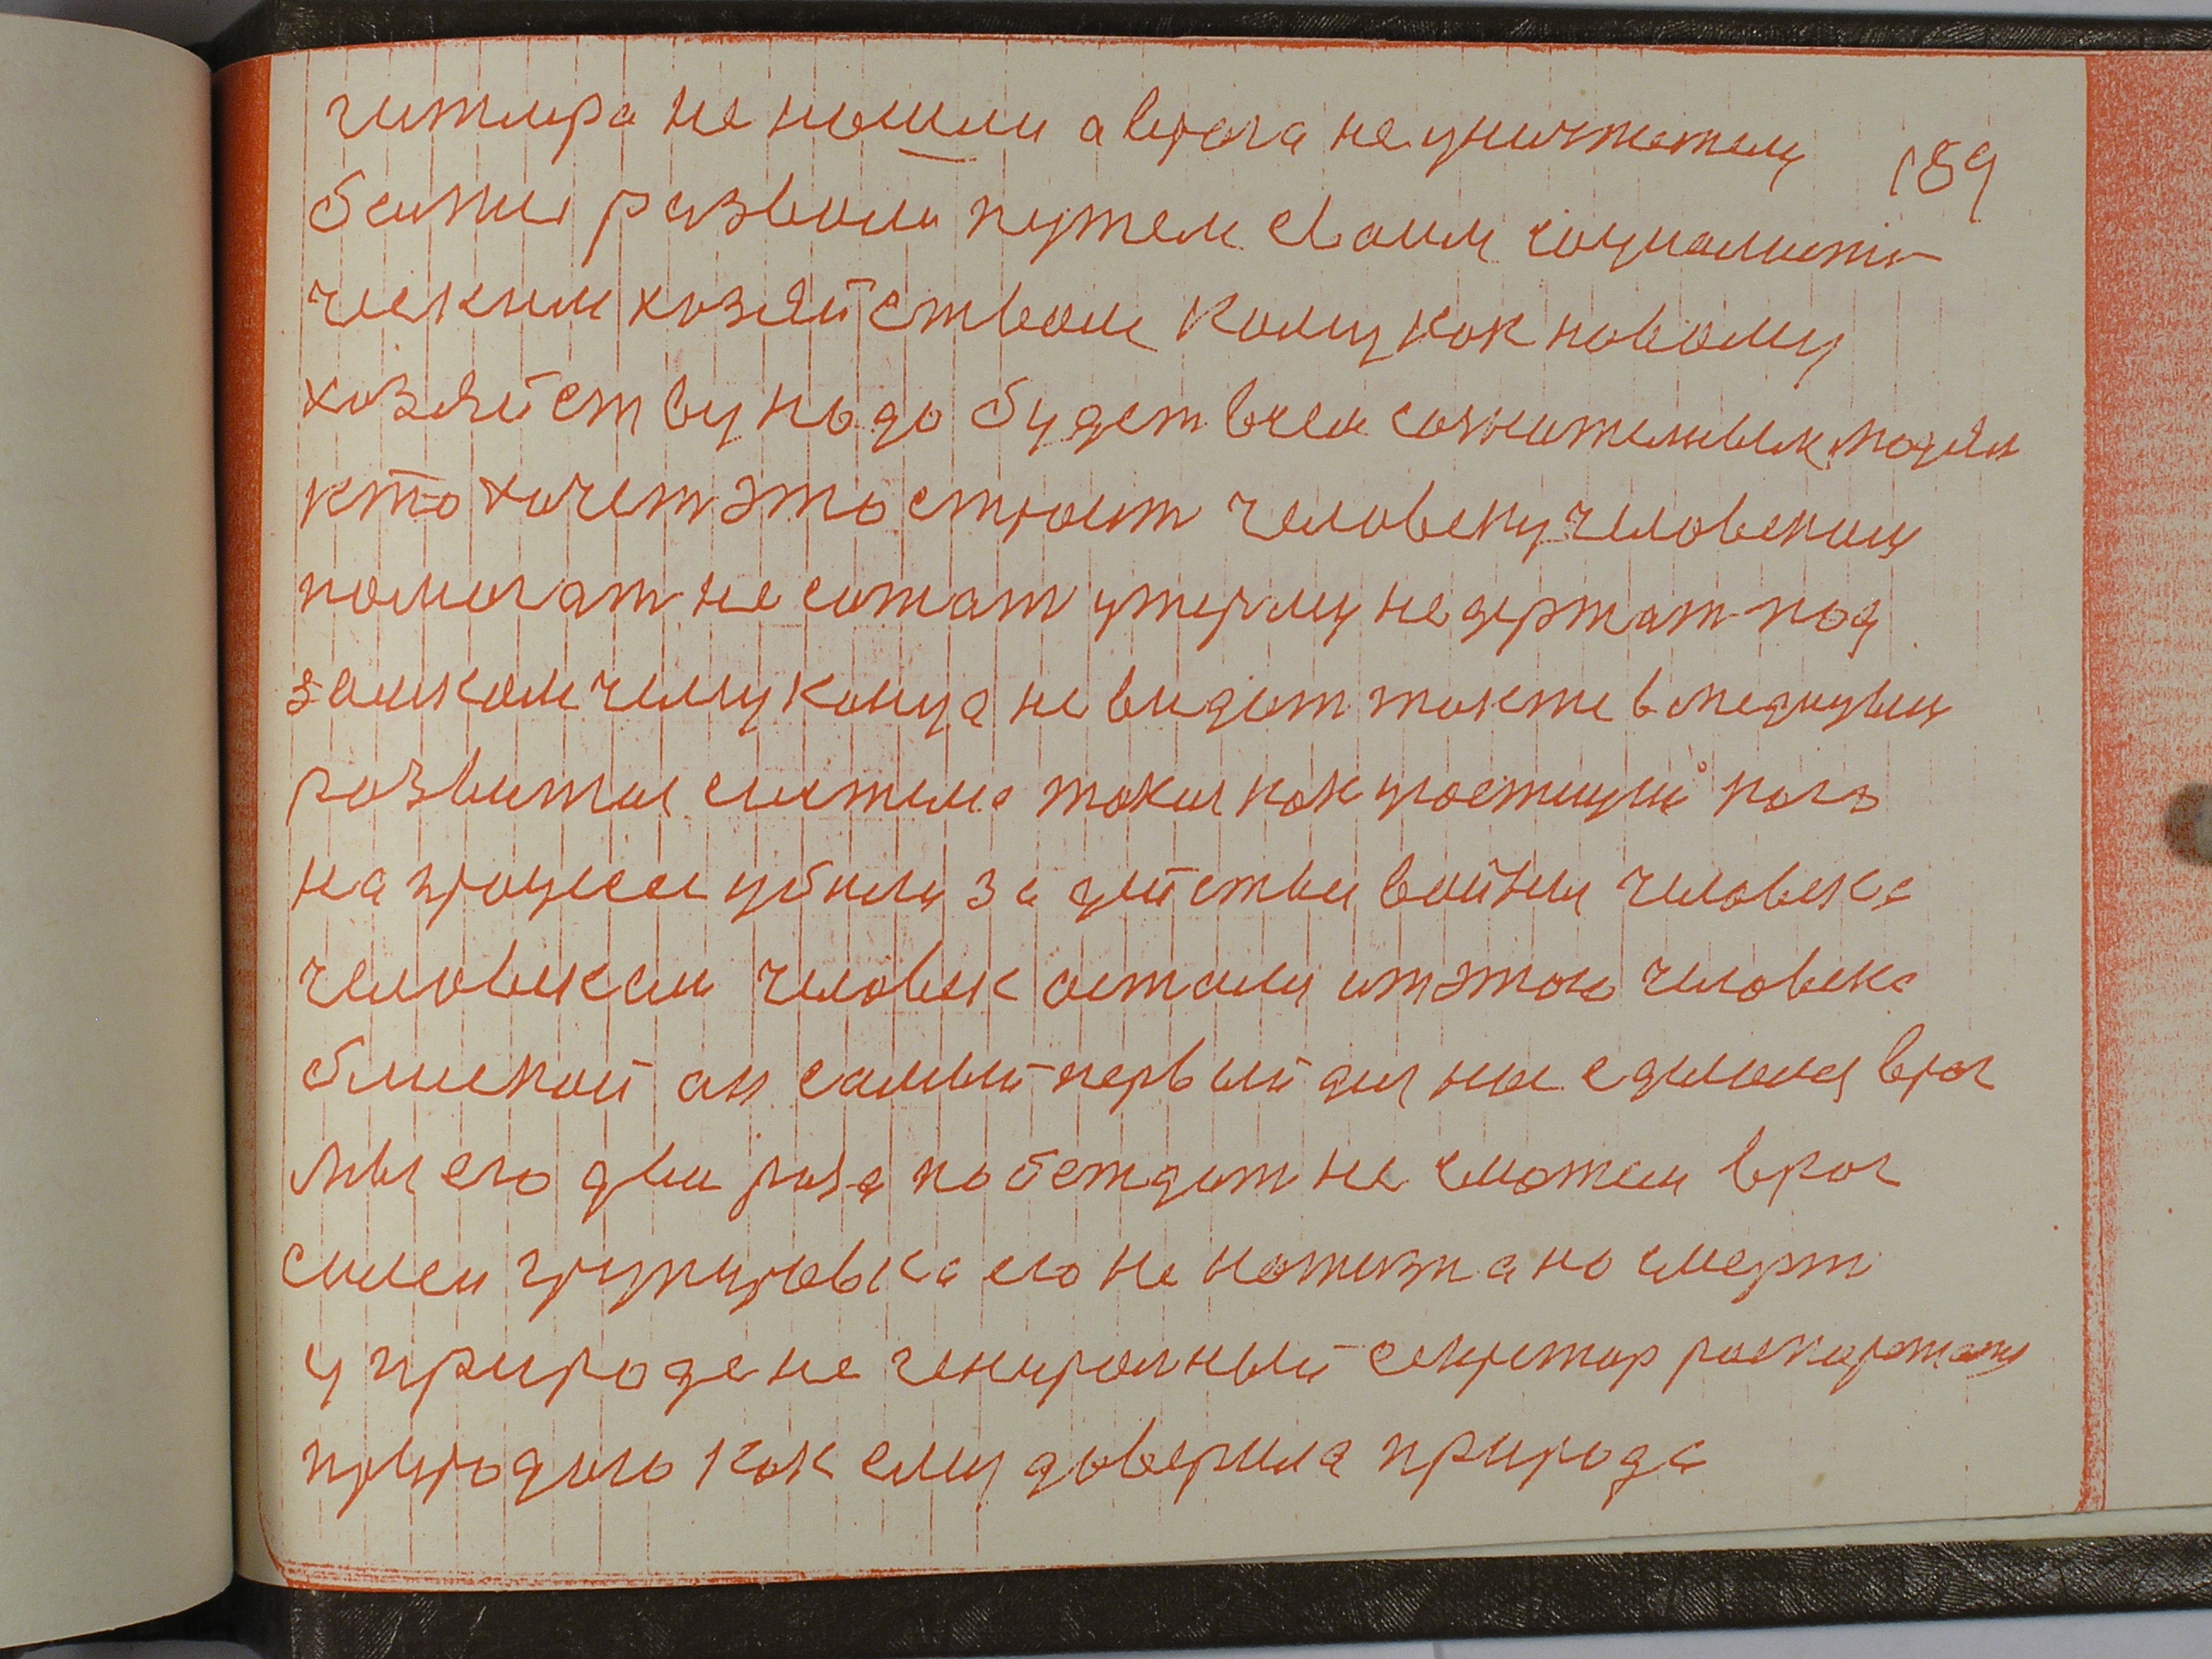 гитлера не нашли а врага не уничтожили
189
бальше развели путем своим социалисти
ческим хозяйством кому как новому
хозяйству надо будет всем сознательным людям
кто хочет это строит человеку человеком
помогат не сожат утюрму не держат под
замком чему конца не видит также в
развития система такия как
на процеси убили за действия войны человека
человеком человек остался итэтого человека
блиской он самый первый для нас единый враг
мы его два раза побеждат не сможем враг
силен групировка его не нотжизн а но смерт
у природе не генеральный секретар
природою как ему доверила природа